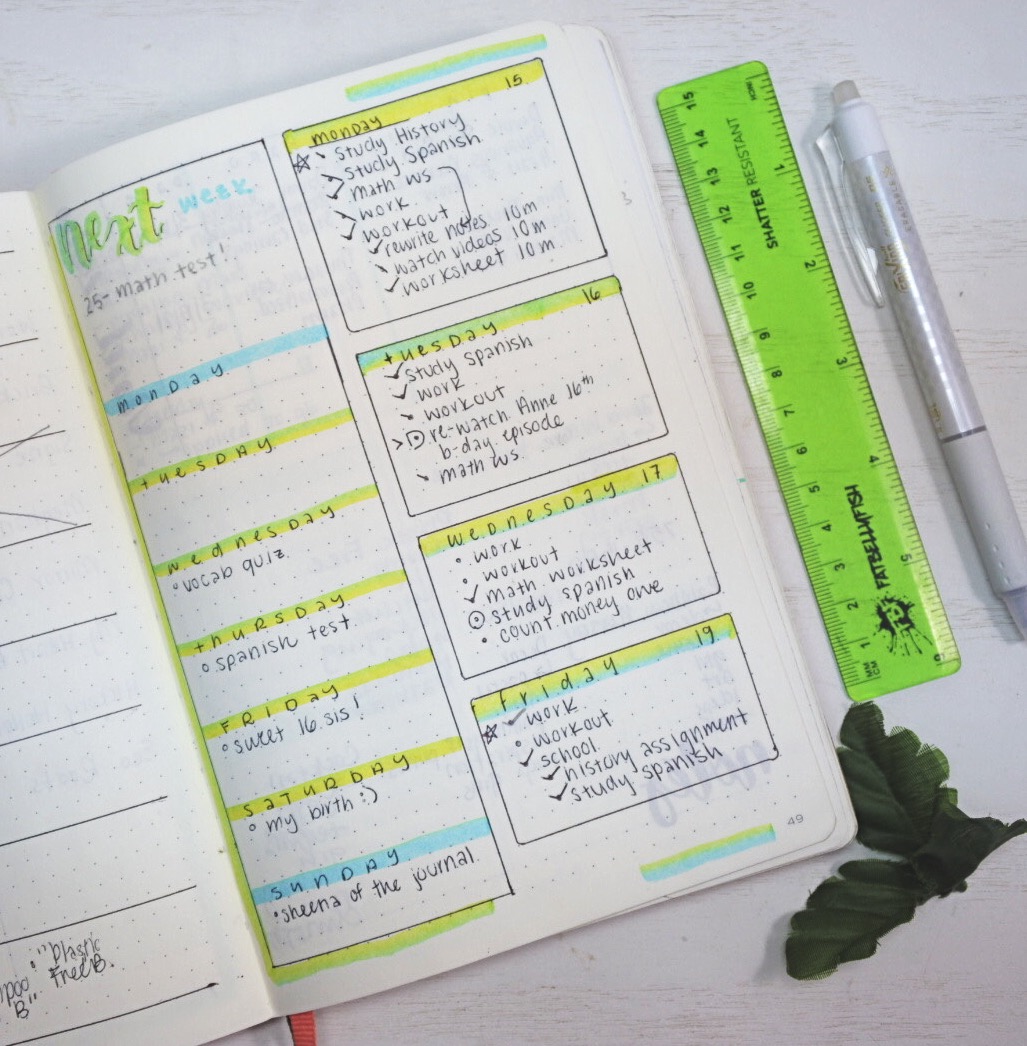 next week
25- math test!
monday
tuesday
wednesday
vocab quiz
thursday
spanish test
FRIDay
sweet 16 sis!
SATURDAY
my birth :)
sunday
sheena of the journal
monday 15
study History
study Spanish
math ws
work
workout
rewrite notes 10m
watch videos 10m
worksheet 10m
tuesday 16
study spanish
work
workout
re-watch Anne 16th
b-day episode
math ws.
wednesday 17
work
workout
math worksheet
study spanish
count money owe
friday 19
work
workout
school
history assignment
study spanish
49
"Plastic
Free B.
poo
B"
SHATTER RESISTANT
FATBELLYFISH
MM
CM
1 2 3 4 5 6 7 8 9 10 11 12 13 14 15
1 2 3 4 5 6